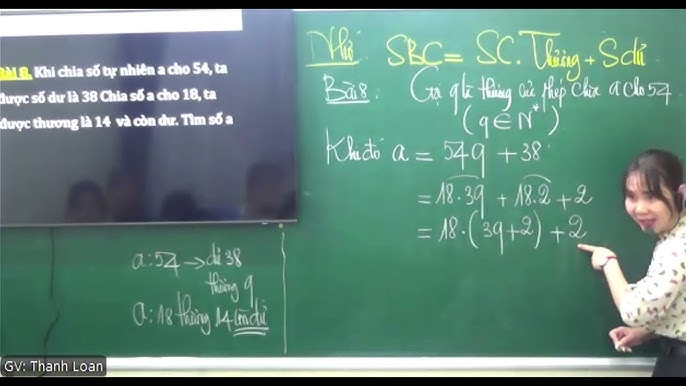 Bài 8. Khi chia số tự nhiên a cho 54, ta
được số dư là 38 Chia số a cho 18, ta
được thương là 14 và còn dư. Tìm số a
Nhớ: SBC = SC. Thương + Sdư
Bài 8: Gọi q là thương của phép chia a cho 54
(q ∈ N*)
Khi đó a = 54q + 38
= 18.3q + 18.2 + 2
= 18.(3q+2) + 2
a:54 → dư 38
thương q
a:18 thương 14 còn dư
GV: Thanh Loan